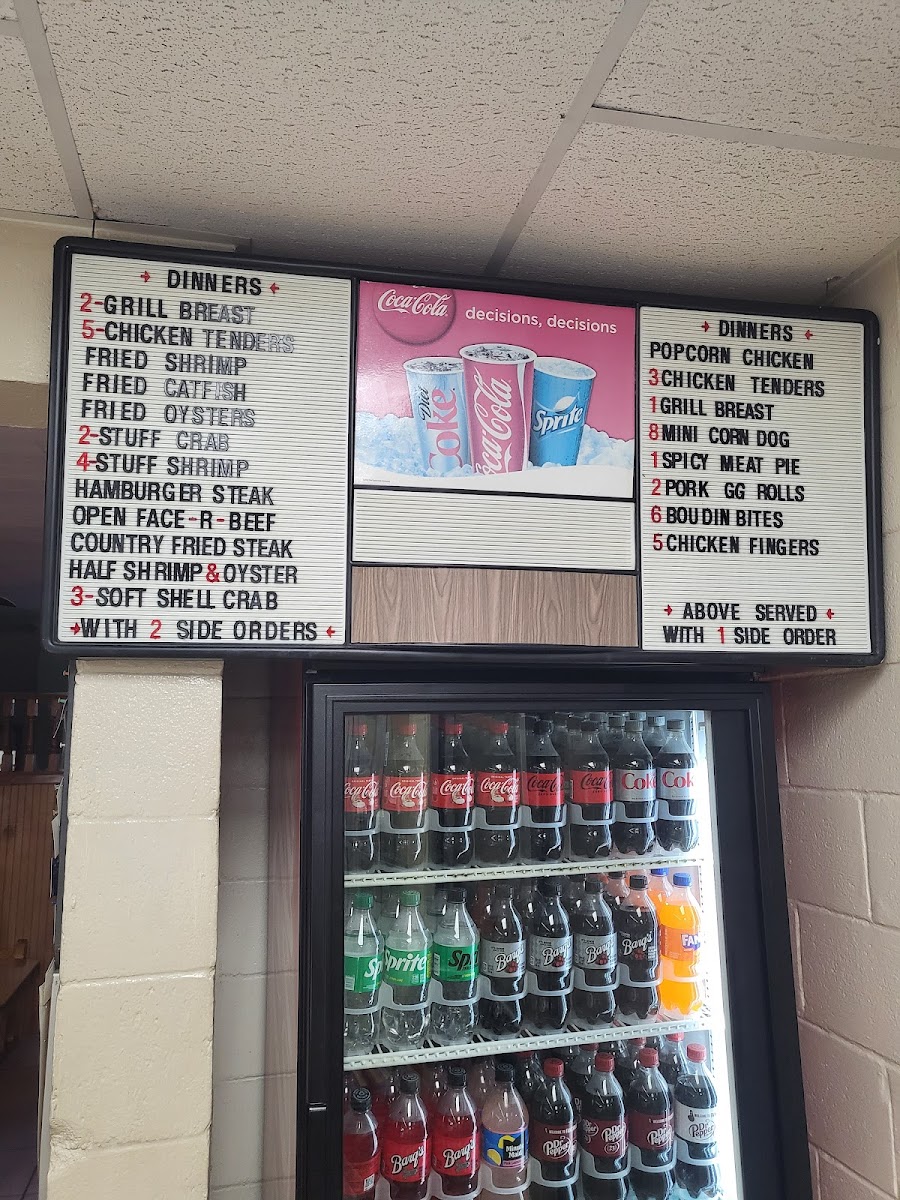 → DINNERS ←
2-GRILL BREAST
5-CHICKEN TENDERS
FRIED SHRIMP
FRIED CATFISH
FRIED OYSTERS
2-STUFF CRAB
4-STUFF SHRIMP
HAMBURGER STEAK
OPEN FACE-R-BEEF
COUNTRY FRIED STEAK
HALF SHRIMP & OYSTER
3-SOFT SHELL CRAB
→WITH 2 SIDE ORDERS←
Coca-Cola
decisions, decisions
Diet Coke
Coca-Cola
Sprite
→ DINNERS ←
POPCORN CHICKEN
3 CHICKEN TENDERS
1 GRILL BREAST
8 MINI CORN DOG
1 SPICY MEAT PIE
2 PORK GG ROLLS
6 BOUDIN BITES
5 CHICKEN FINGERS
→ ABOVE SERVED ←
WITH 1 SIDE ORDER
Coca-Cola
Coca-Cola
Coca-Cola
Coca-Cola
Coca-Cola
Coca-Cola
Coke
Coke
Sprite
Sprite
Sp
Barq's
Barq's
Barq's
Barq's
FAN
Barq's
Barq's
Minute Maid
Dr Pepper
Dr Pepper
Dr Pepper
Dr Pepper